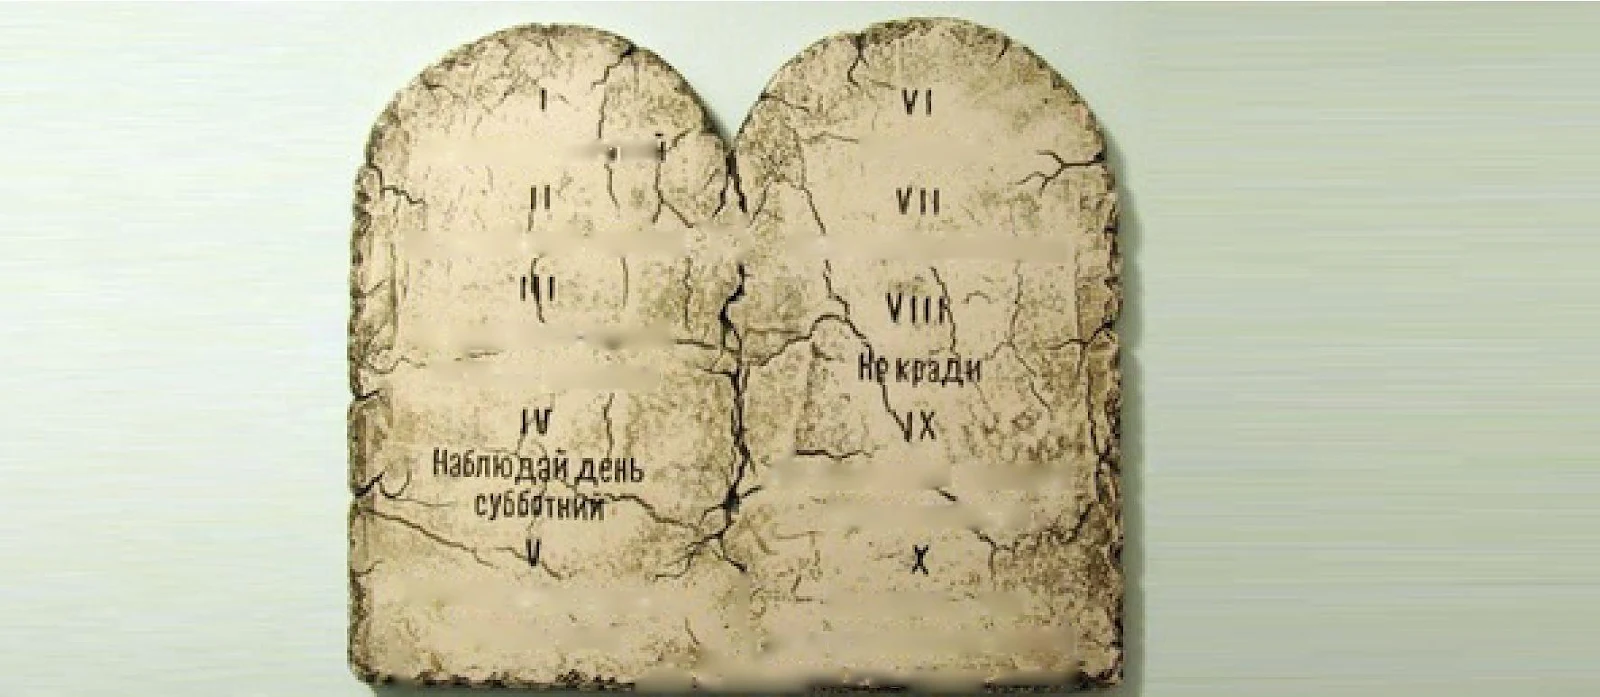 I
II
III
IV
Наблюдай день
субботний
V
VI
VII
VIII
Не кради
IX
X